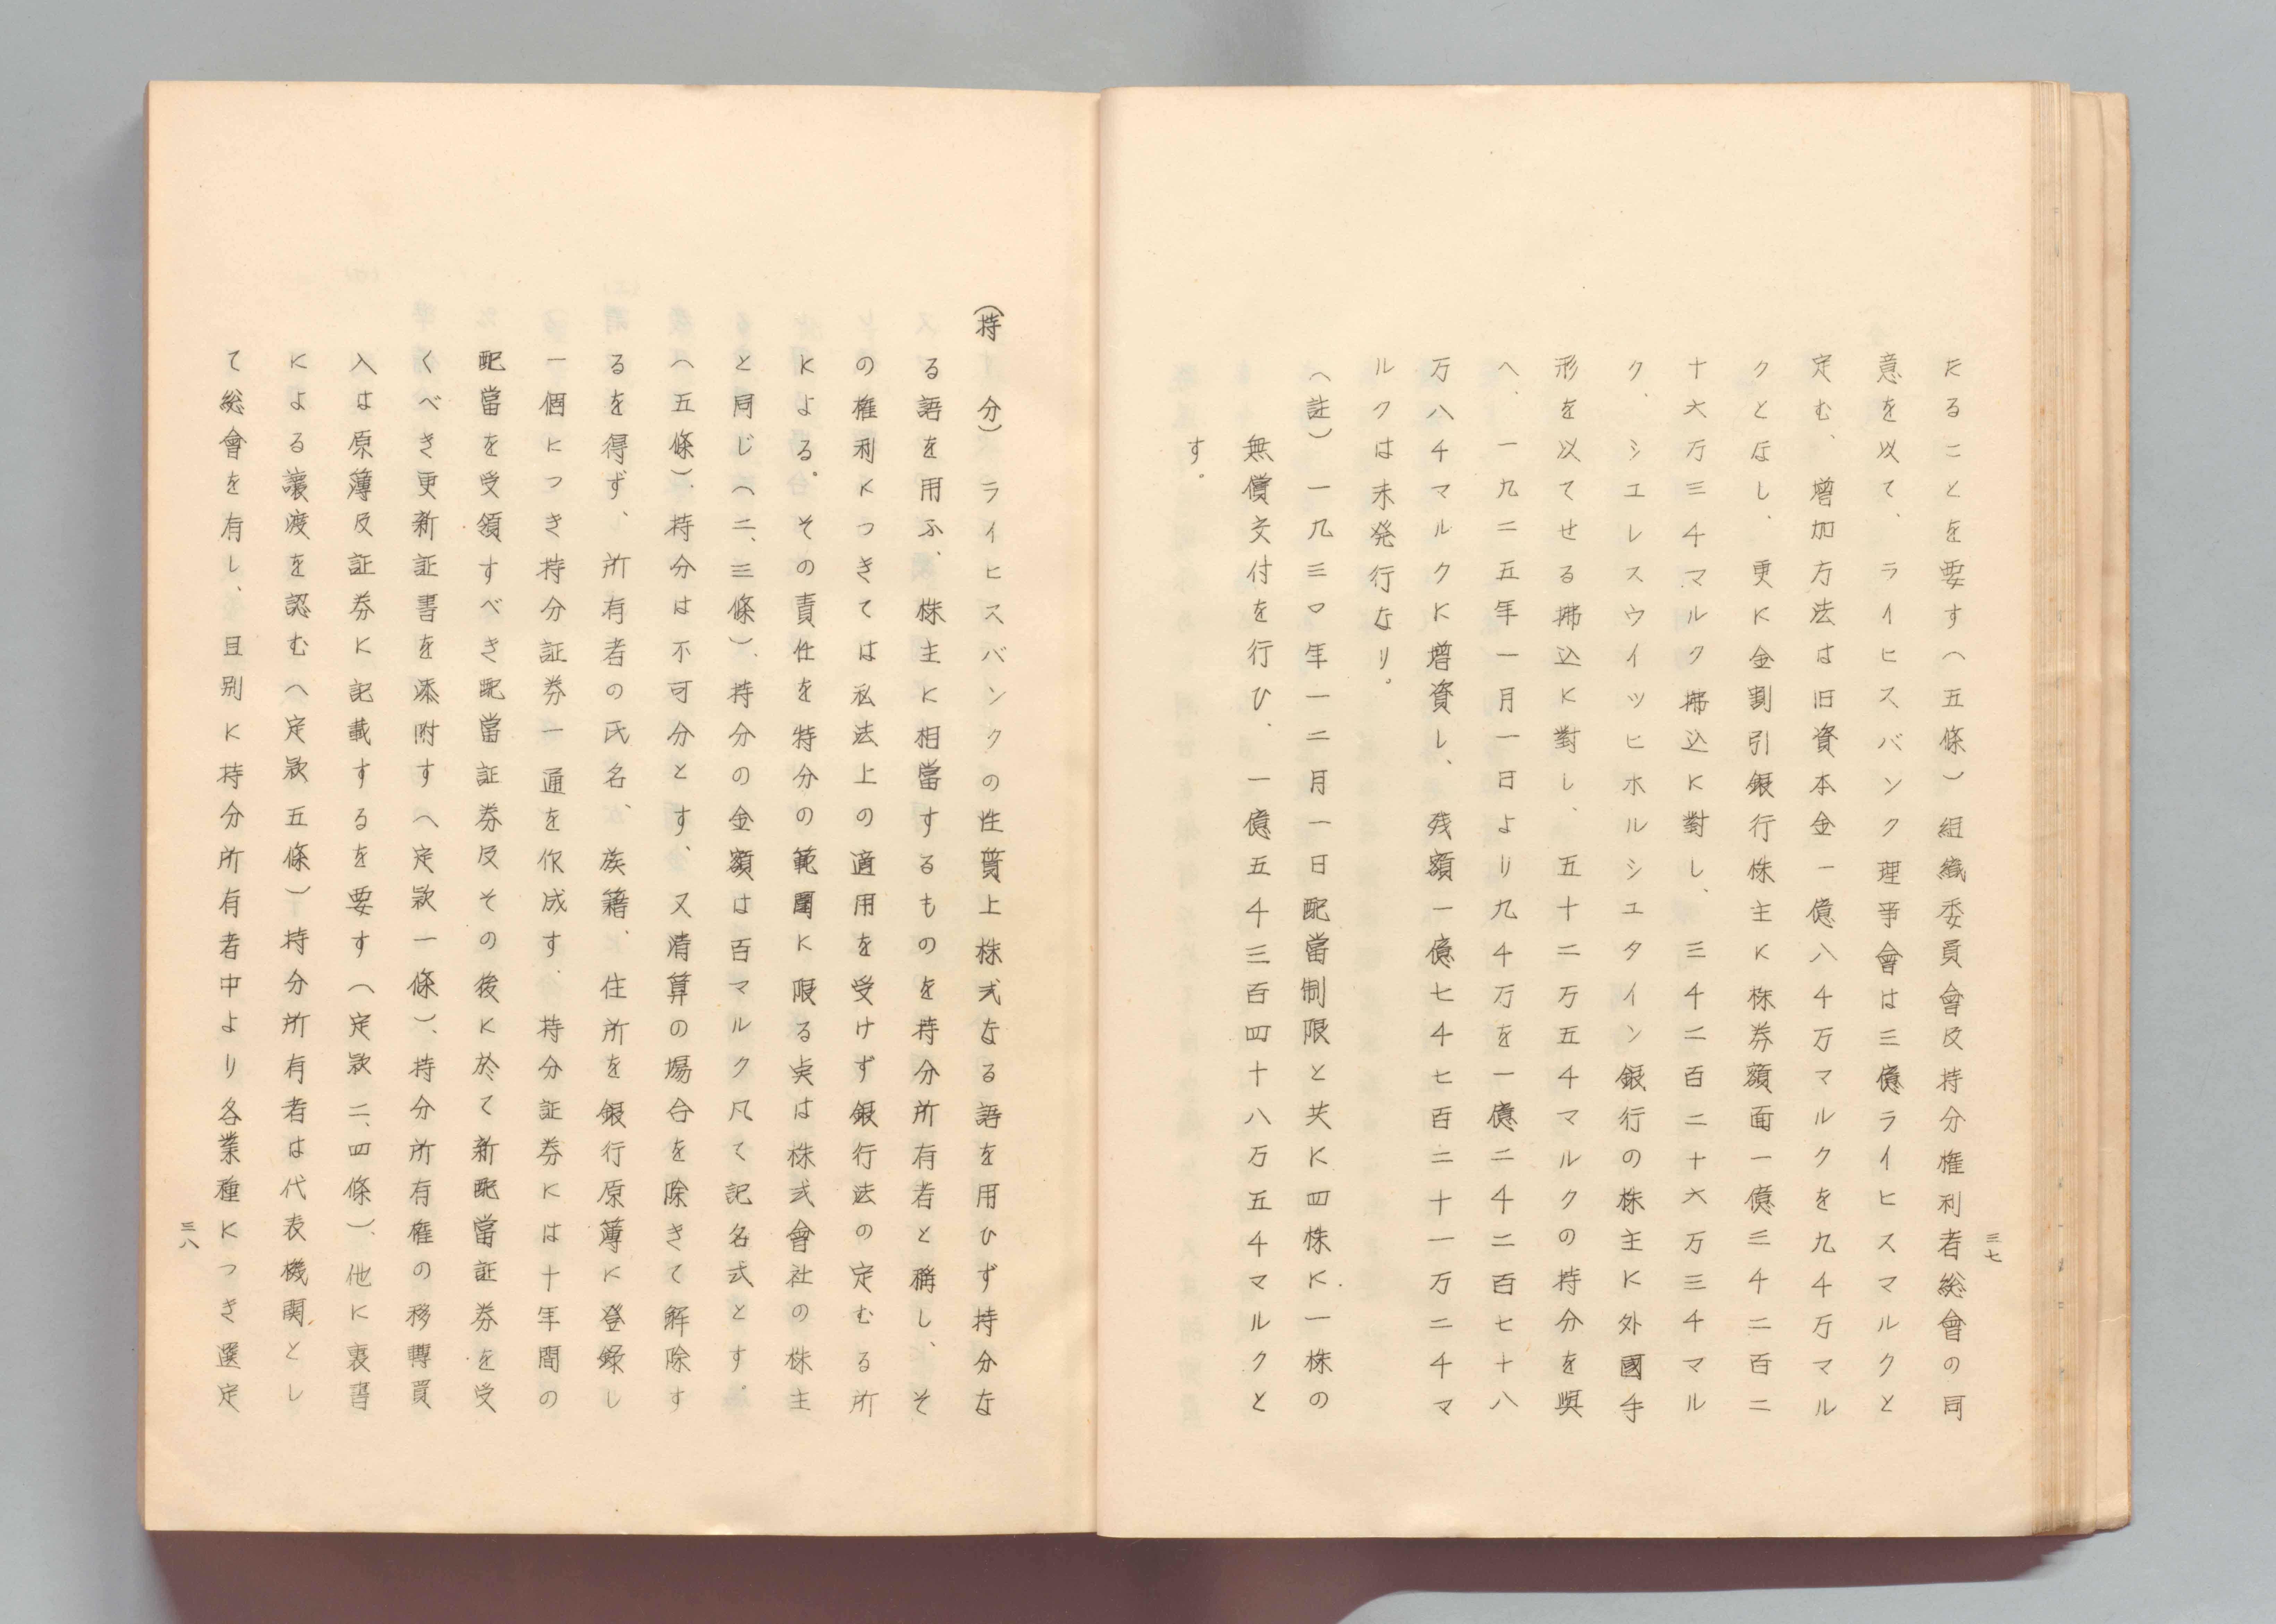 三七
たることを要す（五條）組織委員會及持分権利者総會の同
意を以て、ライヒスバンク理事會は三億ライヒスマルクと
定む、増加方法は旧資本金一億八千万マルクを九千万マル
クとなし、更に金割引銀行株主に株券額面一億三千二百二
十六万三千マルク拂込に對し、三千二百二十六万三千マル
ク、シエレスウイツヒホルシユタイン銀行の株主に外國手
形を以てせる拂込に對し、五十二万五千マルクの持分を與
へ、一九二五年一月一日より九千万を一億二千二百七十八
万八千マルクに増資し、残額一億七千七百二十一万二千マ
ルクは未発行なり。
（註）一九三〇年一二月一日配當制限と共に四株に一株の
無償交付を行ひ、一億五千三百四十八万五千マルクと
す。
（持分）ライヒスバンクの性質上株式なる語を用ひず持分な
る語を用ふ、株主に相當するものを持分所有者と稱し、そ
の権利につきては私法上の適用を受けず銀行法の定むる所
による。その責任を特分の範囲に限る点は株式會社の株主
と同じ（二、三條）、持分の金額は百マルク凡て記名式とす。
（五條）、持分は不可分とす、又清算の場合を除きて解除す
るを得ず、所有者の氏名、族籍、住所を銀行原簿に登録し
一個につき持分証券一通を作成す、持分証券には十年間の
配當を受領すべき配當証券及その後に於て新配當証券を受
くべき更新証書を添附す（定款一條）、持分所有権の移轉買
入は原簿及証券に記載するを要す（定款二、四條）、他に裏書
による讓渡を認む（定款五條）持分所有者は代表機関とし
て総會を有し、且別に持分所有者中より各業種につき選定
三八